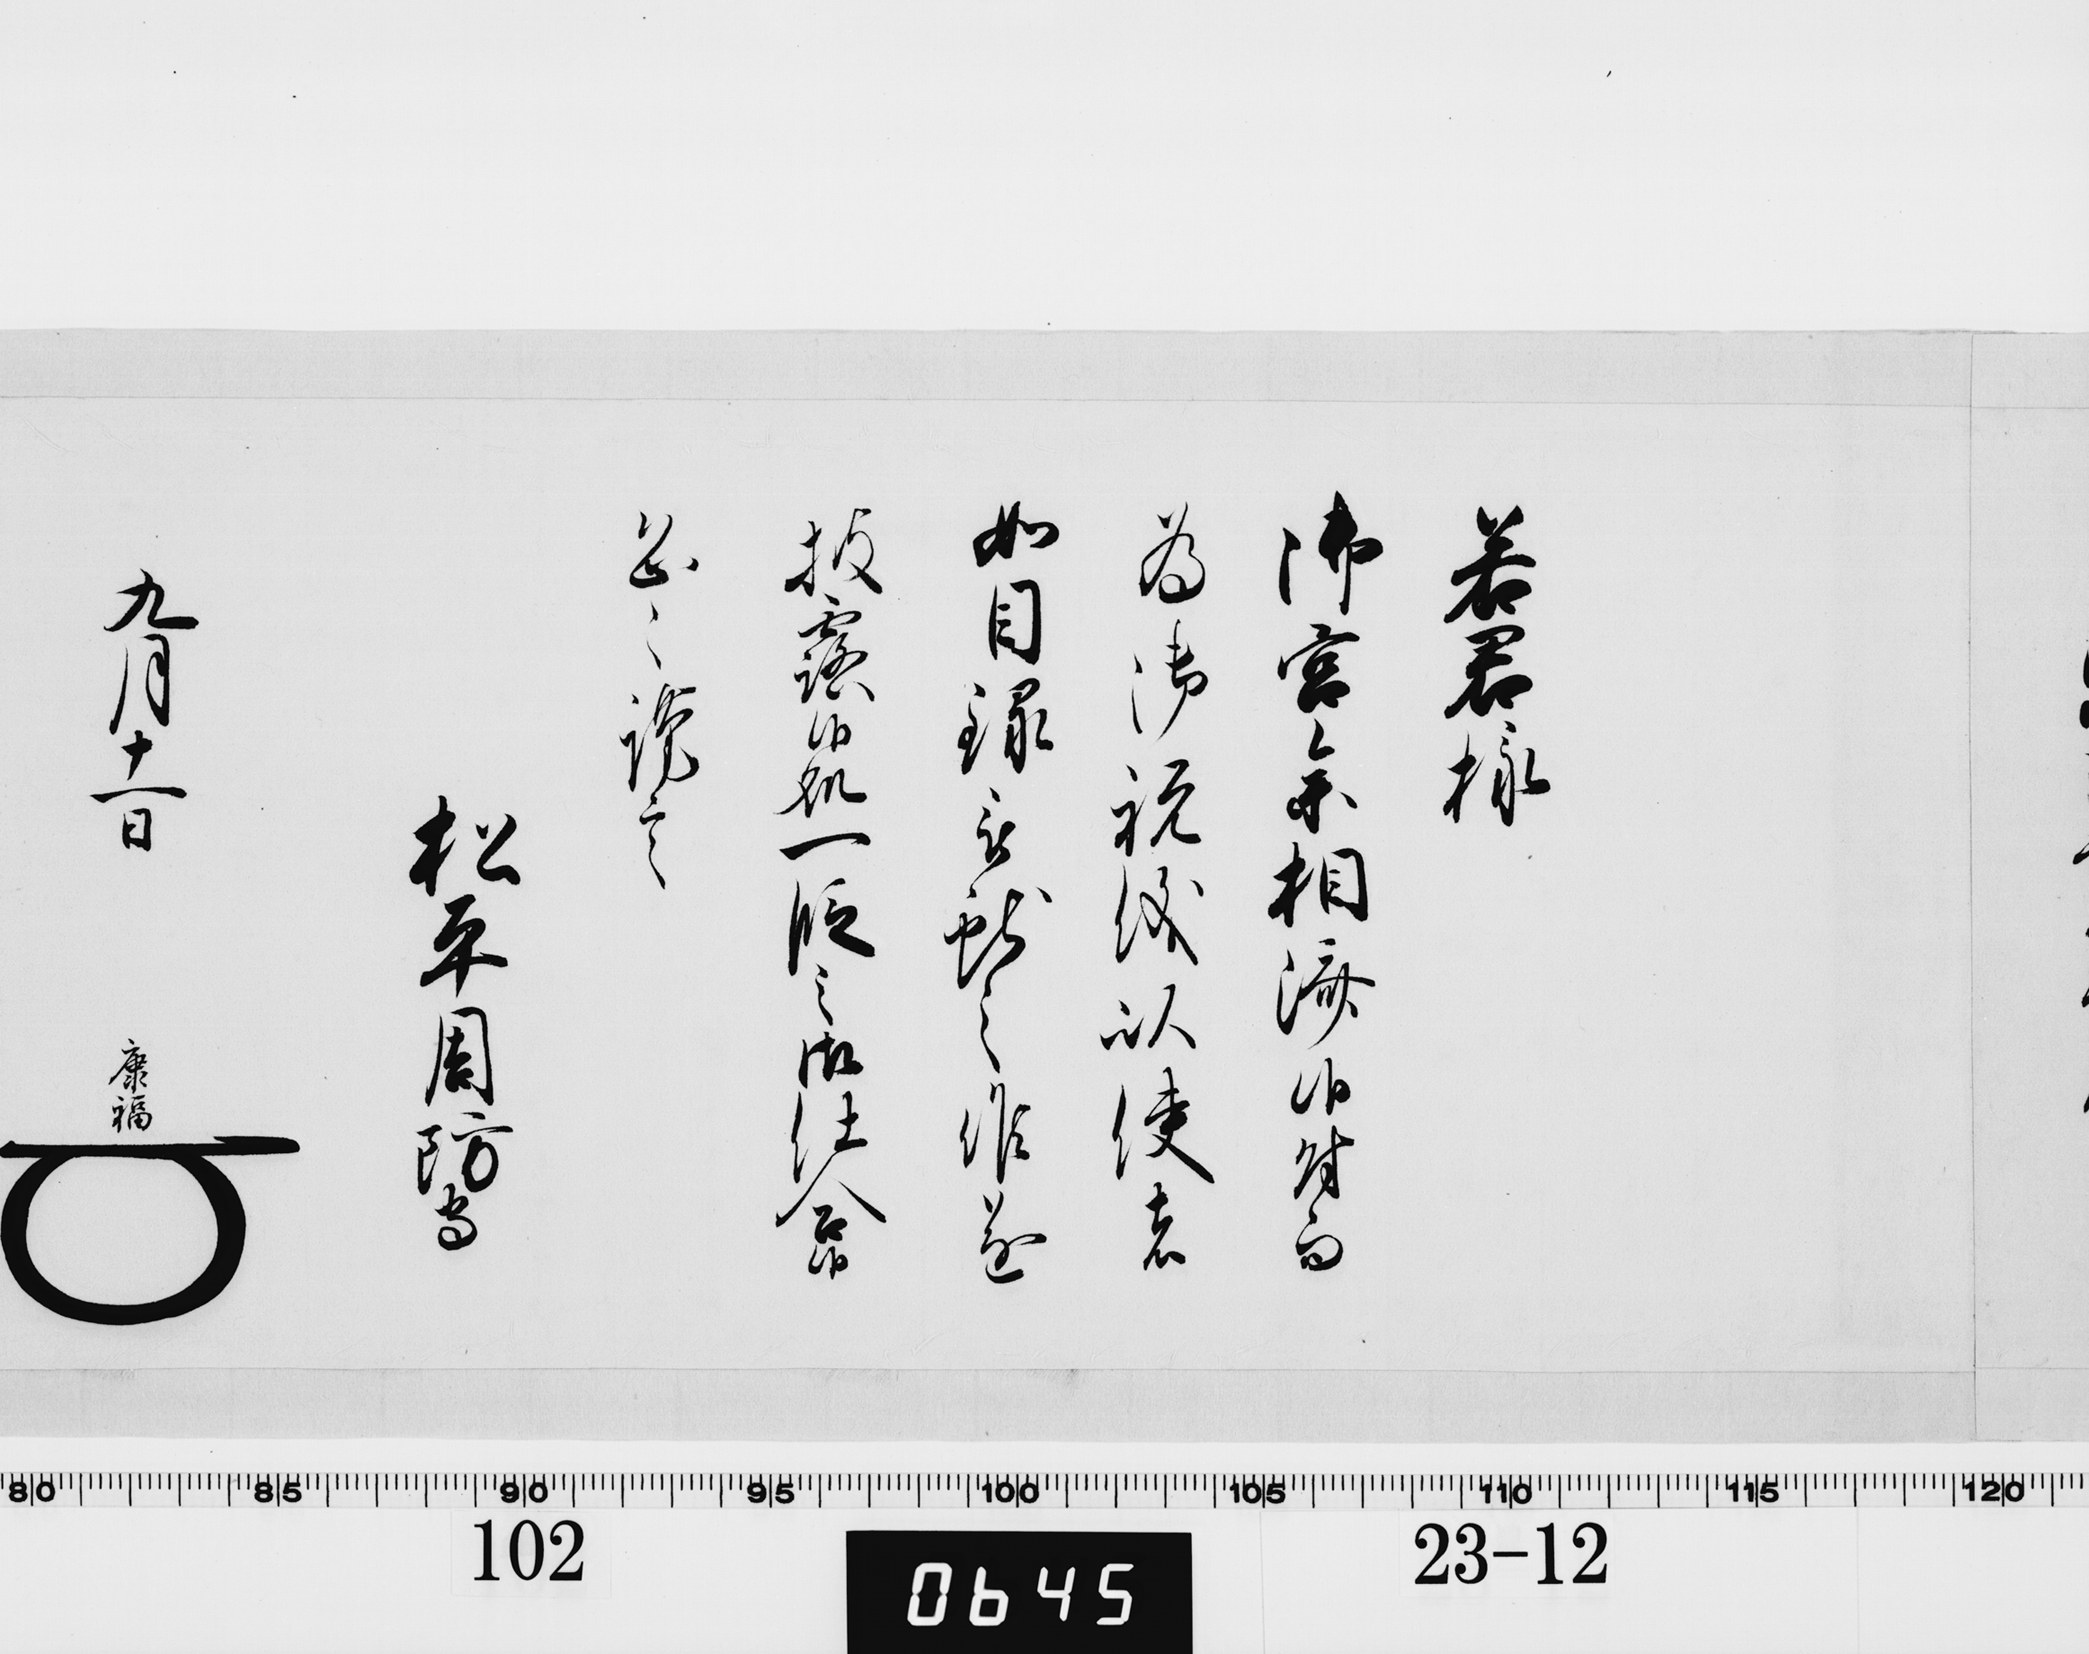 若君様
御宮参相済候付而
為御祝儀以使者
如目録被献之候遂
披露候処一段之御仕合候
恐々謹言
松平周防守
九月十一日
康福
80 85 90 95 100 105 110 115 120
102
0645
23-12